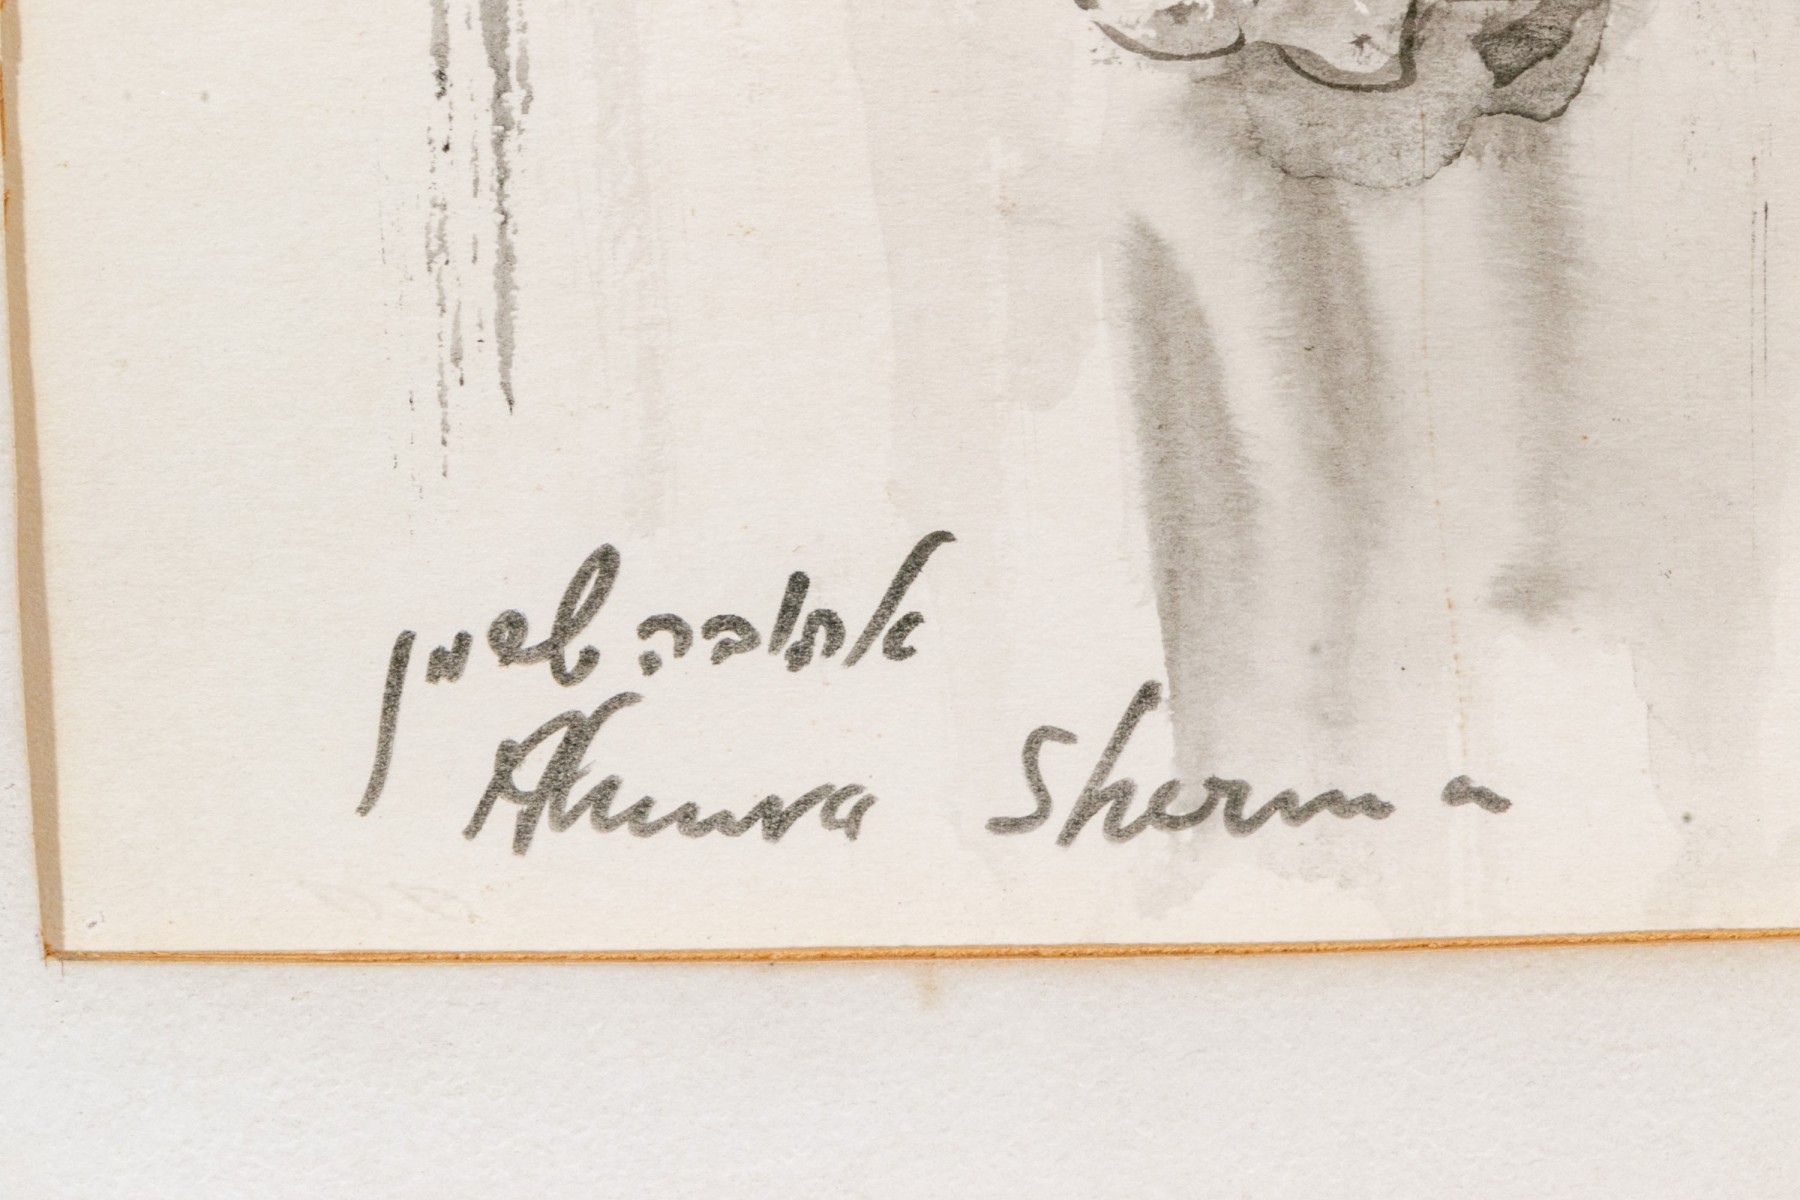 אהובה שרמן
Ahuva Sherman